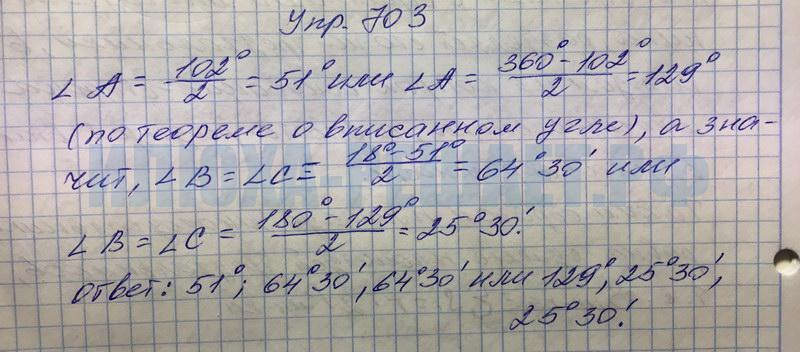 Упр. 703
∠A = 102°/2 = 51° или ∠A = 360° - 102°/2 = 129°
(по теореме о вписанном угле), а зна-
чит, ∠B = ∠C = 18° - 51°/2 = 64°30' или
∠B = ∠C = 180° - 129°/2 = 25°30'.
ответ: 51°; 64°30', 64°30' или 129°, 25°30',
25°30'.